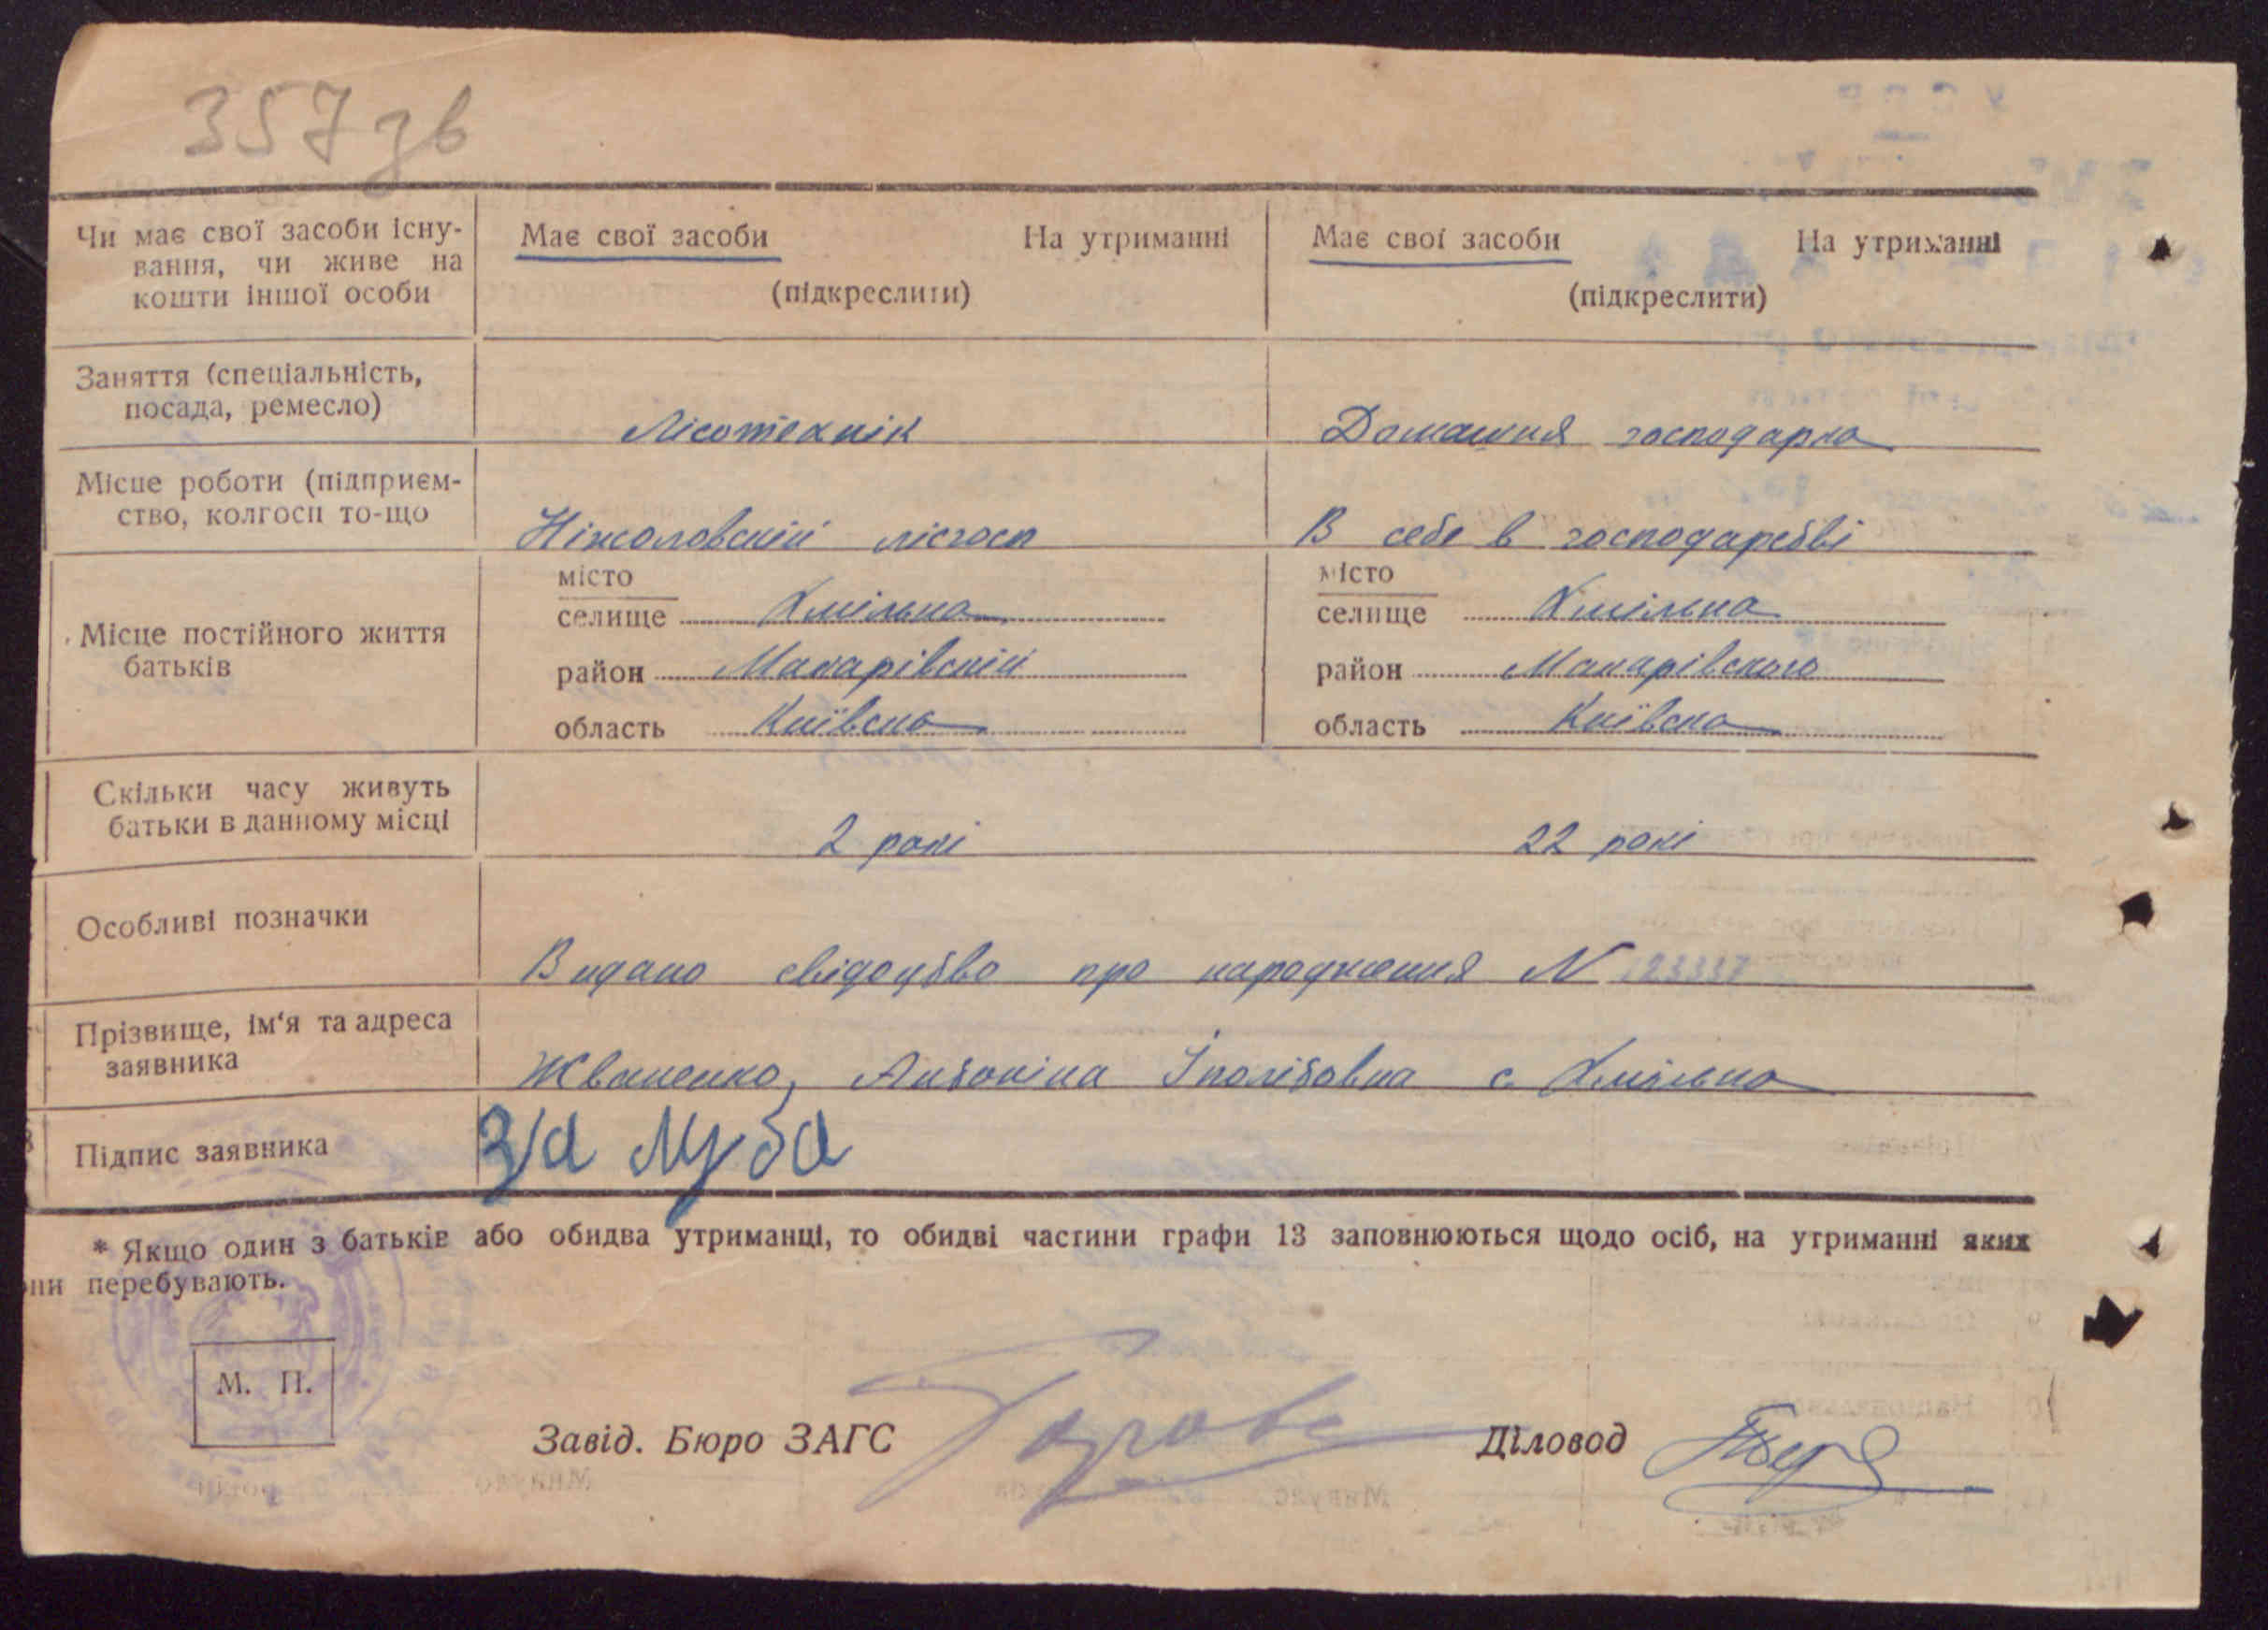 357 зв
Чи має свої засоби існу- Має свої засоби На утриманні Має свої засоби На утриманні
вання, чи живе на
кошти іншої особи (підкреслити) (підкреслити)
Заняття (спеціальність,
посада, ремесло) Лісотехнік Домашня господарка
Місце роботи (підприєм-
ство, колгосп то-що лісгосп В себе в господарстві
місто місто
селище Хмільна селище Хмільна
Місце постійного життя
батьків район Макарівський район Макарівського
область Київська область Київська
Скільки часу живуть
батьки в данному місці 2 роки 22 роки
Особливі позначки
Видано свідоцтво про народження N
Прізвище, ім'я та адреса
заявника Жваненко, Антоніна Іполітовна с. Хмільна
Підпис заявника
* Якщо один з батьків або обидва утриманці, то обидві частини графи 13 заповнюються щодо осіб, на утриманні яких
они перебувають.
М. П.
Завід. Бюро ЗАГС Діловод